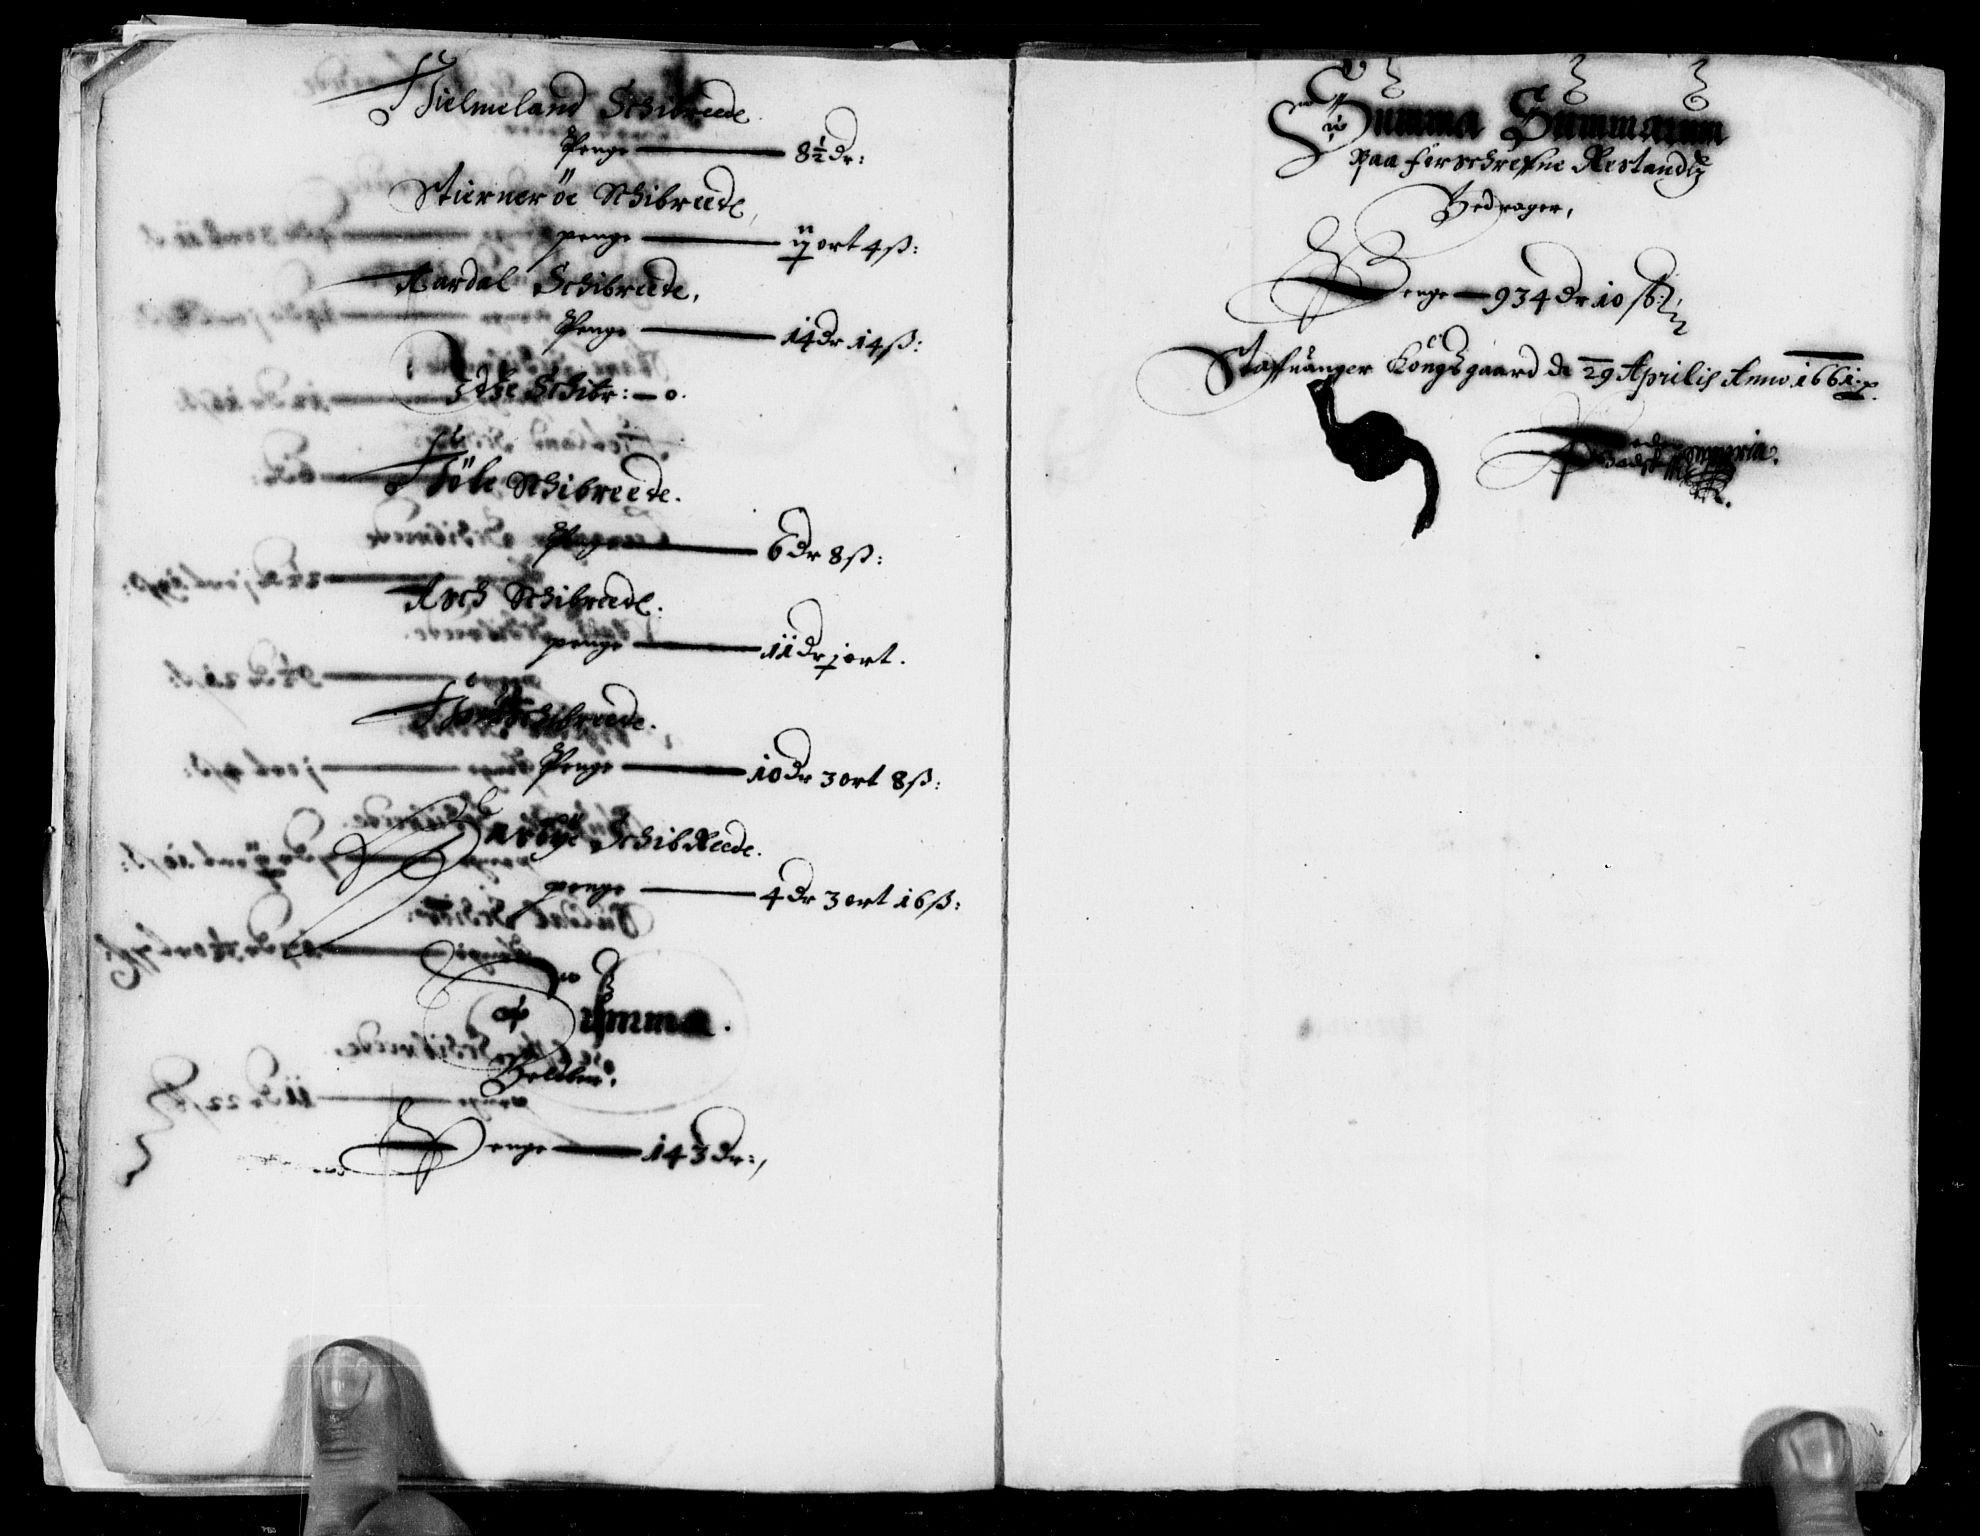 Hielmeland Schibreede.
Penge — 8½ dr:
Stierneröe Schibreede,
penge — ij ort 4 ß:
Aardal Schibreede,
Penge — 14 dr 14 ß:
Idse Schibr: — 0.
Föle Schibreede.
Penge — 6 dr 8 ß:
Asch Schibreede.
penge — 11 dr j ort.
Schibreede.
Penge — 10 dr 3 ort 8 ß:
Schibreede.
penge — 4 dr 3 ort 16 ß:
Summa.
Penge — 143 dr:
Summa Summarum
Paa forschrefne Restandtz
Bedrager,
Penge — 934 dr 10 ß:
Staffuanger Kongsgaard de 29 Aprilis Anno 1661.